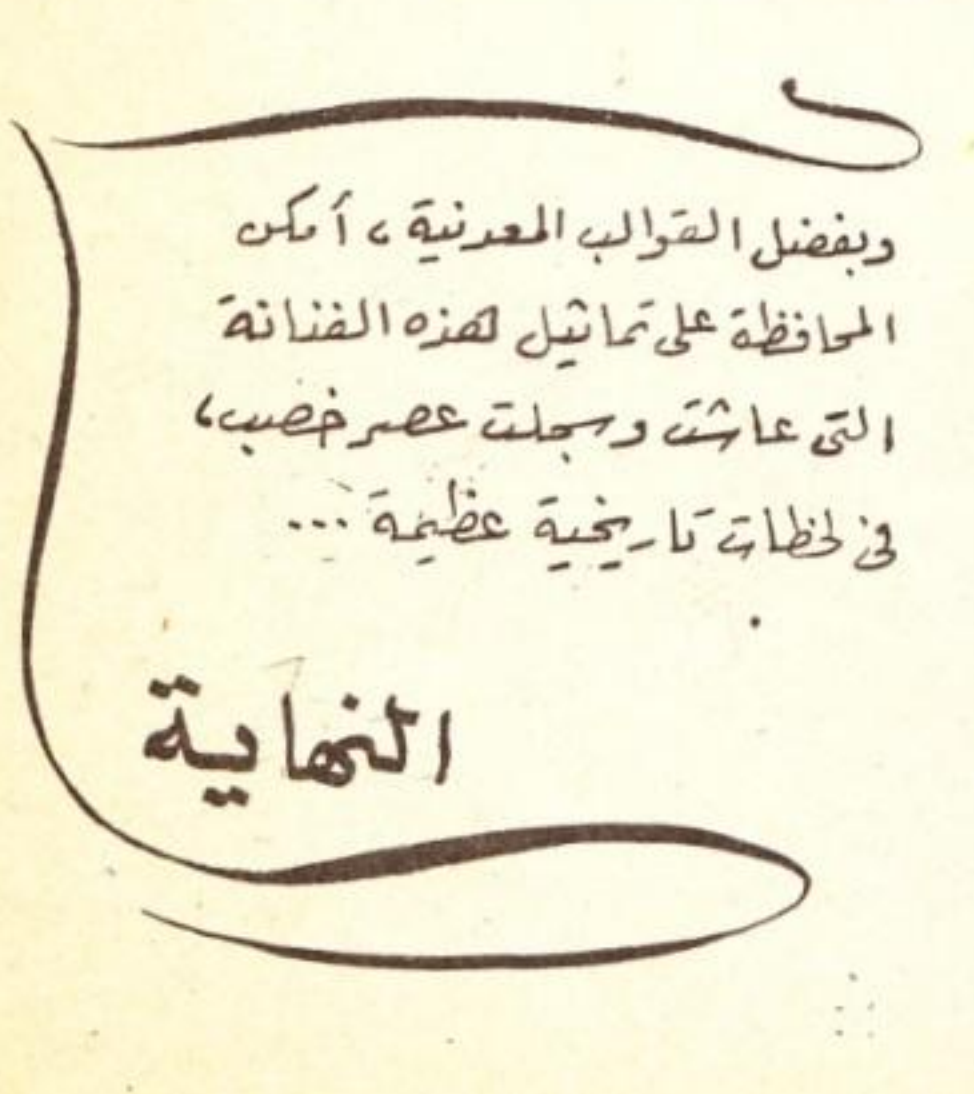 وبفضل القوالب المعدنية، أمكن
المحافظة على تماثيل هذه الفنانة
التى عاشت وسجلت عصر خصب،
فى لحظات تاريخية عظيمة ...
النهاية